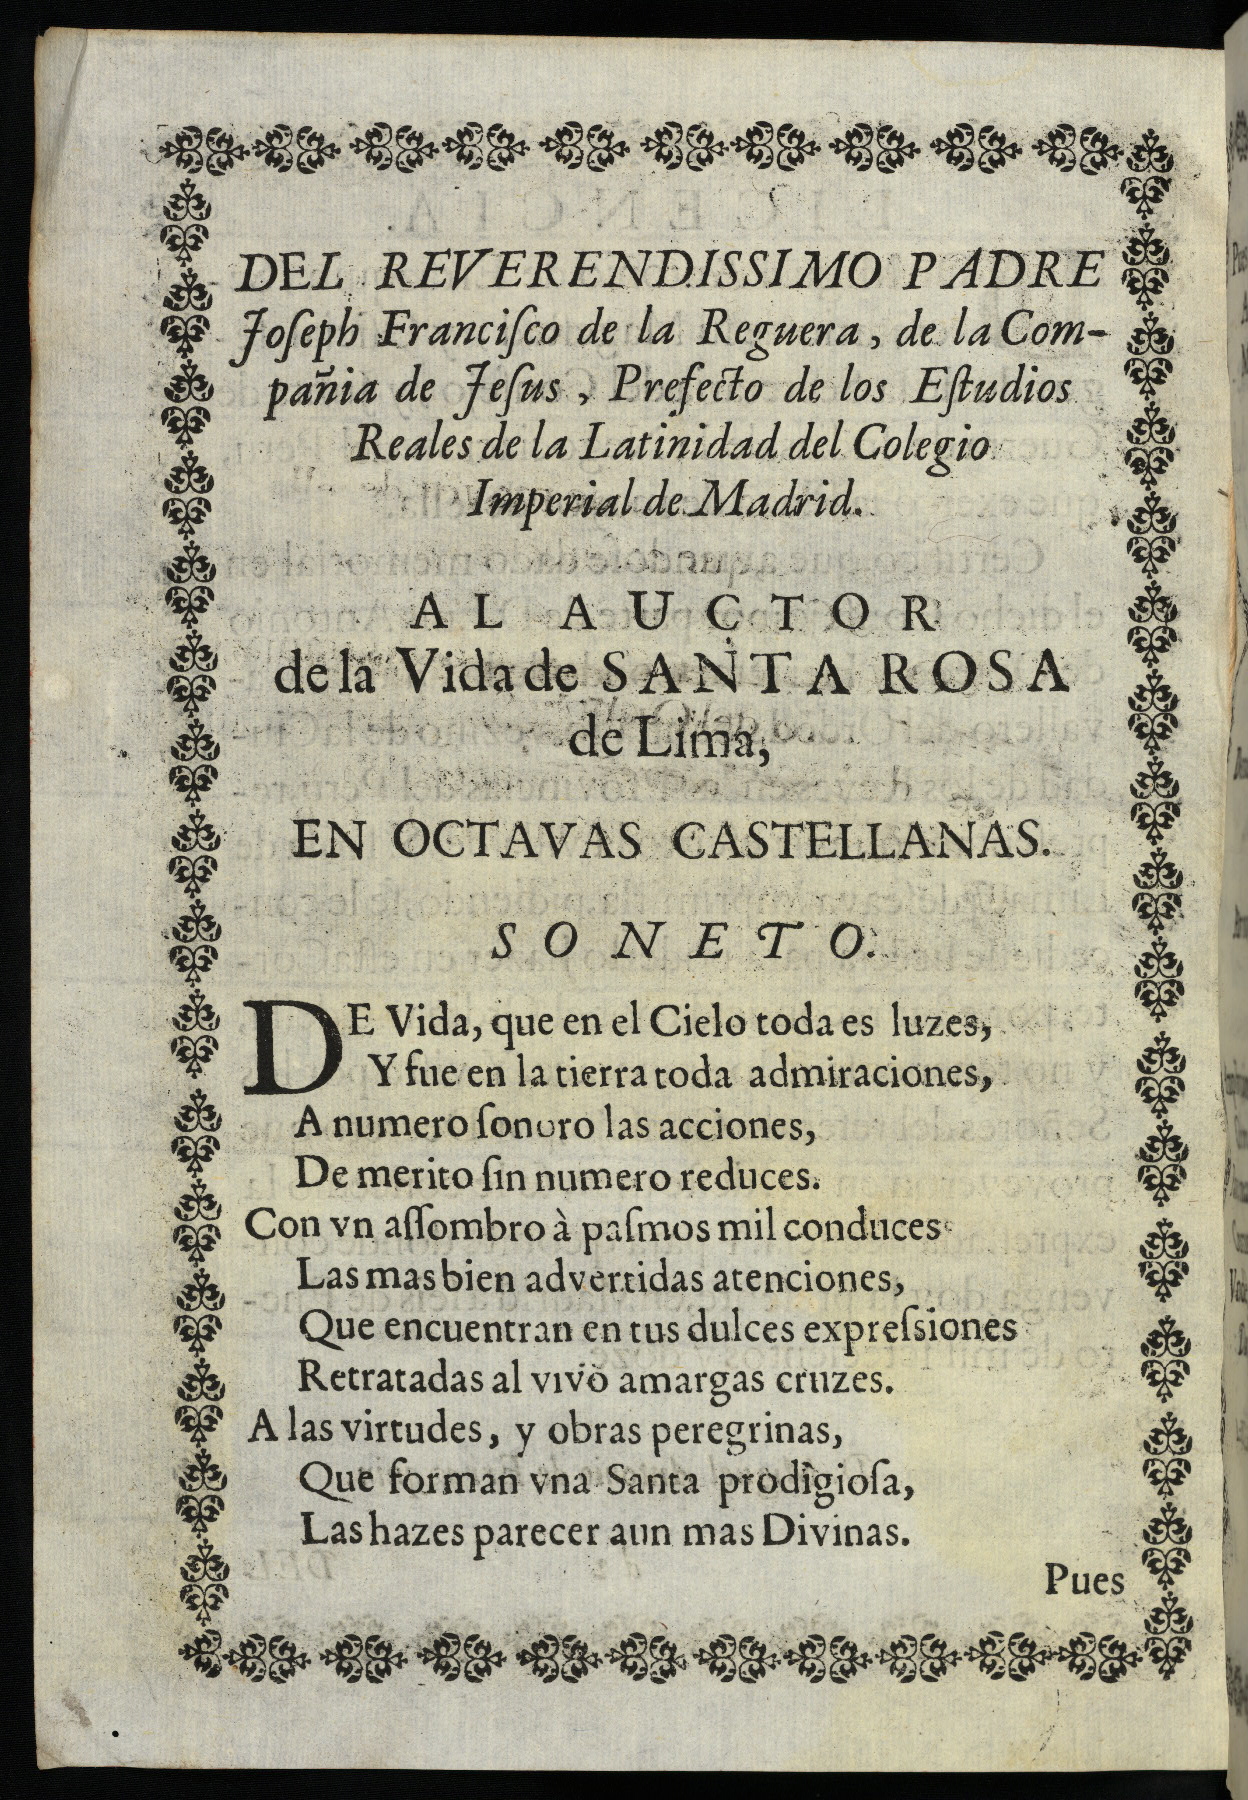 DEL REVERENDISSIMO PADRE
Joſeph Franciſco de la Reguera, de la Com-
pañia de Jeſus, Prefecto de los Eſtudios
Reales de la Latinidad del Colegio
Imperial de Madrid.
AL AUCTOR
de la Vida de SANTA ROSA
de Lima,
EN OCTAVAS CASTELLANAS.
SONETO.
DE Vida, que en el Cielo toda es luzes,
Y fue en la tierra toda admiraciones,
A numero ſonoro las acciones,
De merito ſin numero reduces.
Con vn aſſombro à paſmos mil conduces
Las mas bien advertidas atenciones,
Que encuentran en tus dulces expreſsiones
Retratadas al vivo amargas cruzes.
A las virtudes, y obras peregrinas,
Que forman vna Santa prodigioſa,
Las hazes parecer aun mas Divinas.
Pues